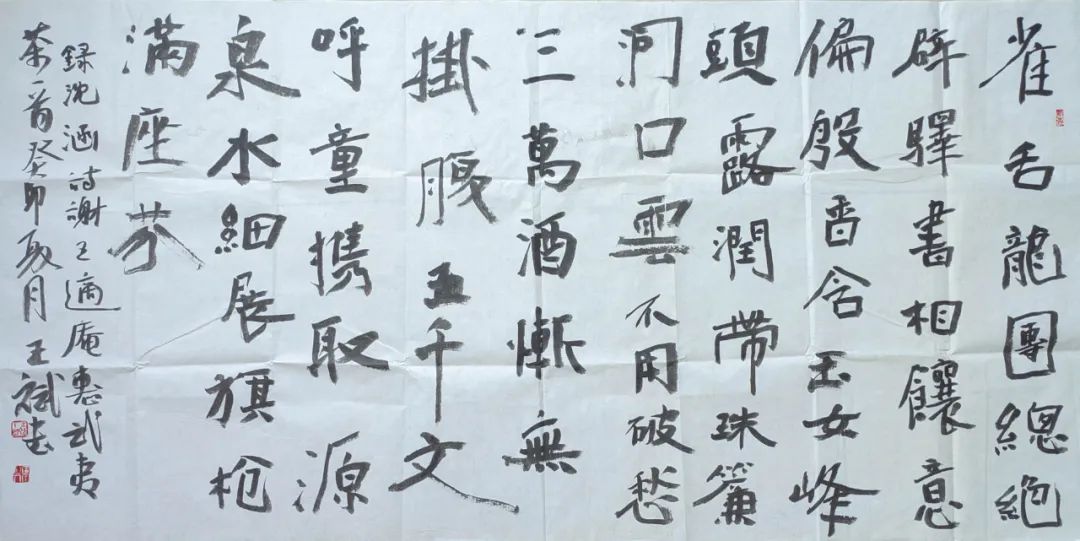 雀舌龍團總絕
群驛書相饟意
偏殷香含玉女峰
頭露潤帶珠簾
洞口雲不用破愁
三萬酒慚無
掛腹五千文
呼童攜取源
泉水細展旗枪
滿座芬
録沈涵诗謝王適庵惠武夷
茶一首癸卯夏月王斌书